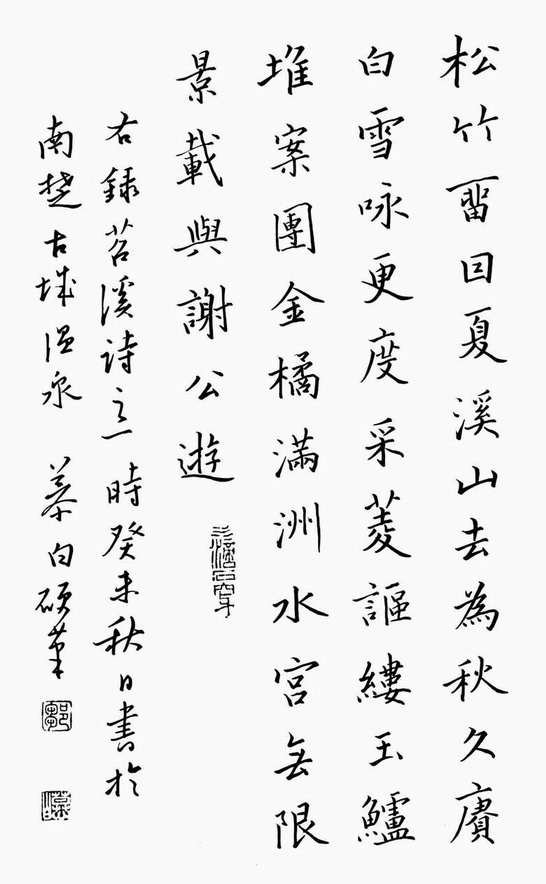 松竹畱囙夏溪山去為秋久賡
白雪咏更度采菱謳縷玉鱸
堆案團金橘滿洲水宮無限
景載與謝公遊
右録苕溪詩之一 時癸未秋日書於
南楚古城温泉 慕白碩筆